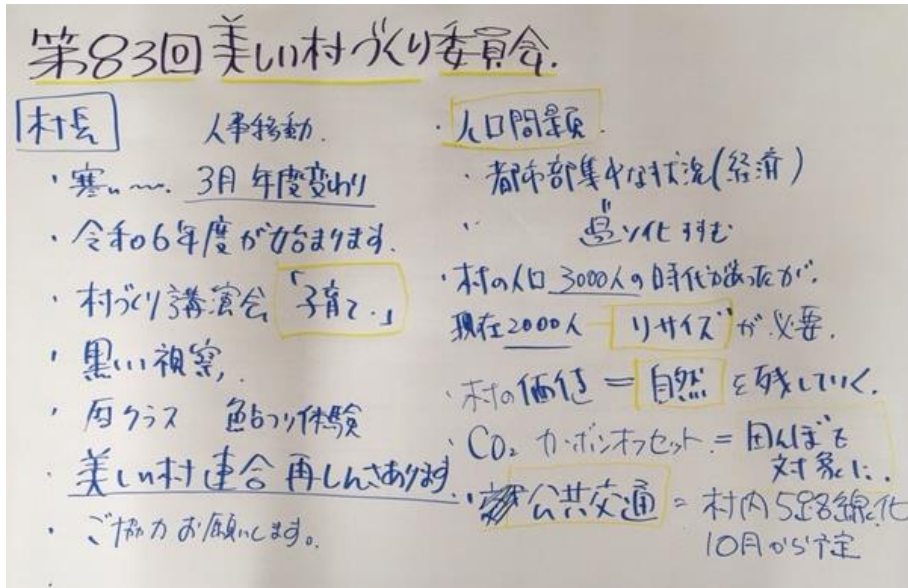 第83回 美しい村づくり委員会.
村長 人事移動.
・寒い〜. 3月 年度変わり
・令和06年度が始まります.
・村づくり講演会 「子育て.」
・黒い視察,
・クラス 体験
・美しい村連合 再しんさあります.
・ご協力お願いします。
・人口問題.
・都市部集中な状況(経済)
〃 ソ化すすむ
・村の人口 3000人の時代があったが.
現在2000人 リサイズ"が必要.
・村の価値 = 自然 を残していく.
・CO₂ カーボンオフセット = 田んぼも
対象に..
・公共交通 = 村内5路線化
10月から予定